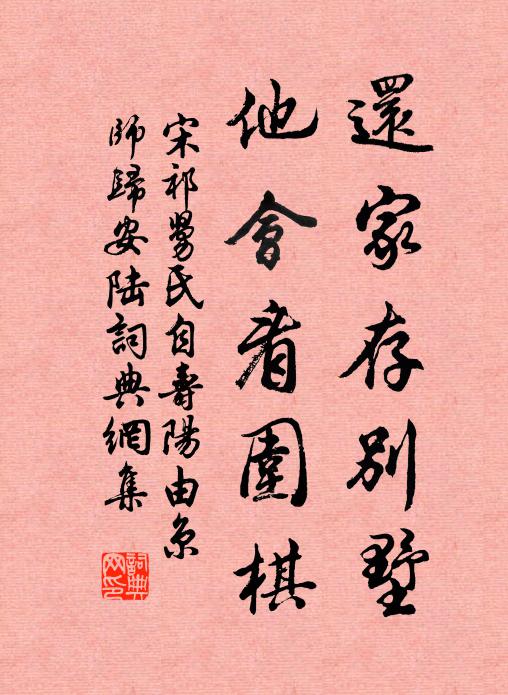 還家存別墅
他會看圍棋
宋祁勞民自壽陽由京
師歸安陸詞典網集
詞典網印